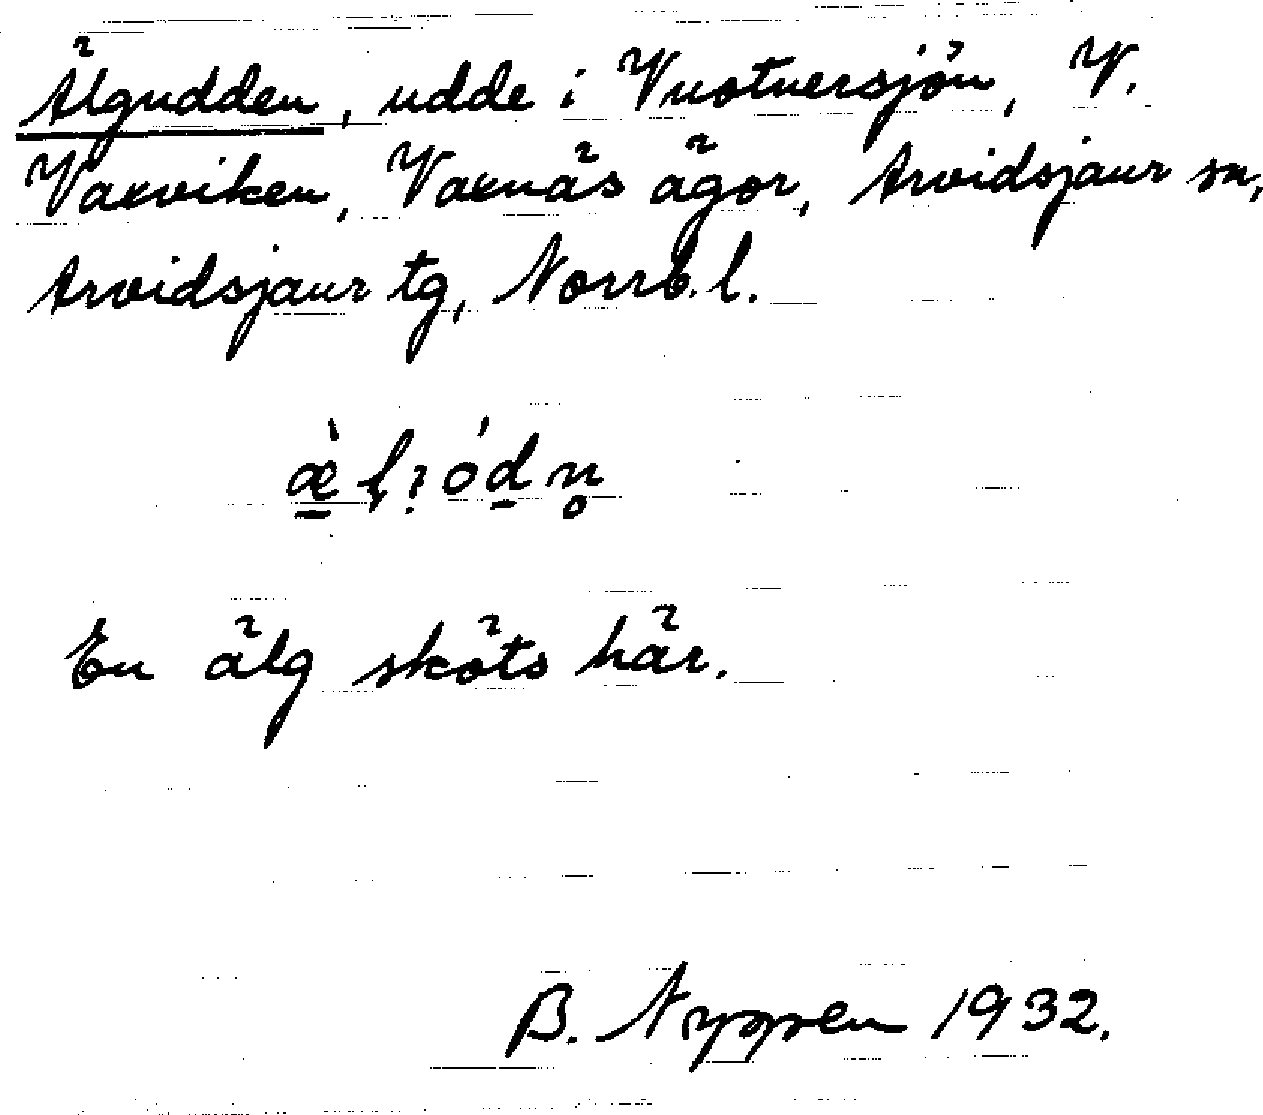 Älgudden, udde i Vuotnersjön, V.
Vaxviken, Vaxnäs ägor, Arvidsjaur sn,
Arvidsjaur tg, Norrb. l.
En älg sköts här.
B. Nygren 1932.